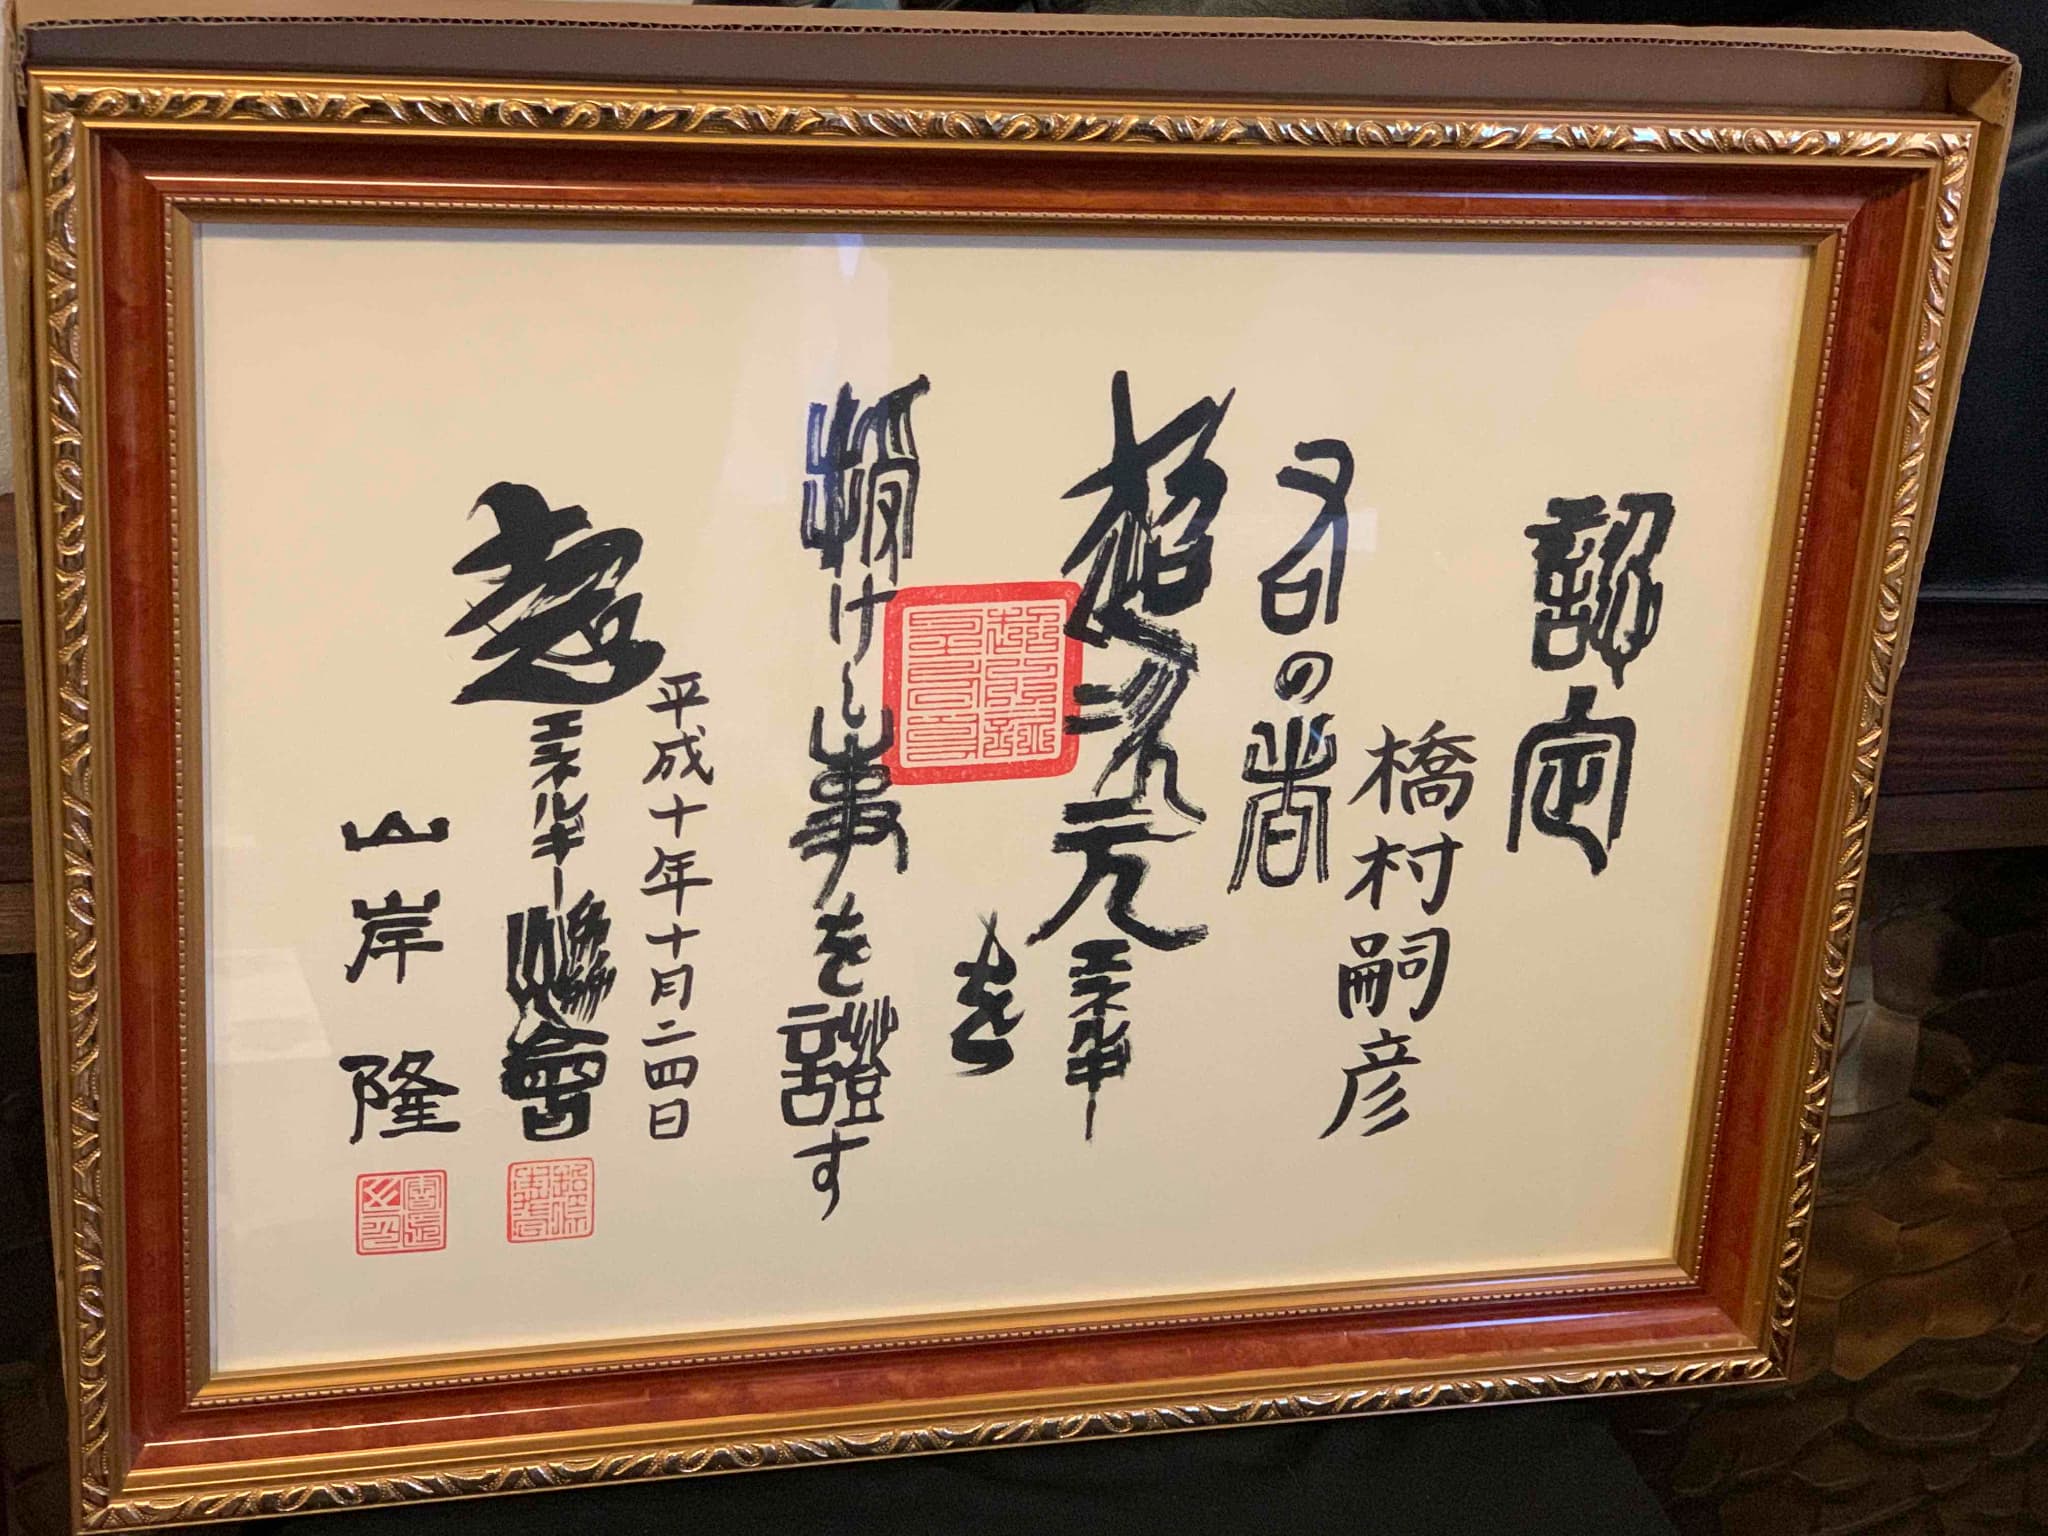 認定
橋村嗣彦
右の者
超次元エネルギー
を
授けし事を證す
平成十年十月二四日
超エネルギー協會
山岸隆